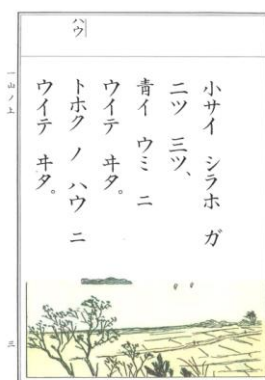 ハウ
小サイ シラホ ガ
二ツ 三ツ、
青イ ウミ ニ
ウイテ ヰタ。
トホク ノ ハウ ニ
ウイテ ヰタ。
一 山ノ上
三